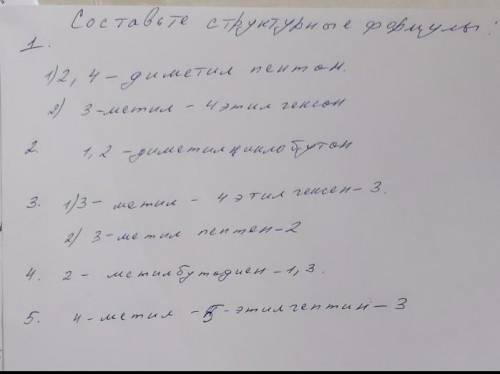 Составьте структурные формулы:
1.
1) 2, 4 - диметил пентон.
2) 3-метил - 4 этил гексон
2. 1,2 - диметилциклобутон
3. 1) 3 - метил - 4 этил гексен - 3.
2) 3-метил пентен - 2
4. 2 - метилбутодиен - 1,3.
5. 4 - метил - 5 - этил гептин - 3